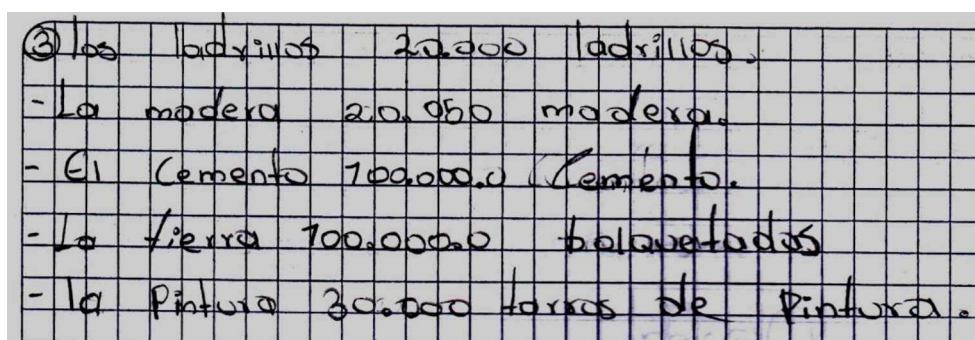 ③ los ladrillos 20.000 ladrillos.
- La madera 20.050 madera.
- El Cemento 100.000.0 Cemento.
- La tierra 100.000.0
- la Pintura 30.000 tarros de Pintura.